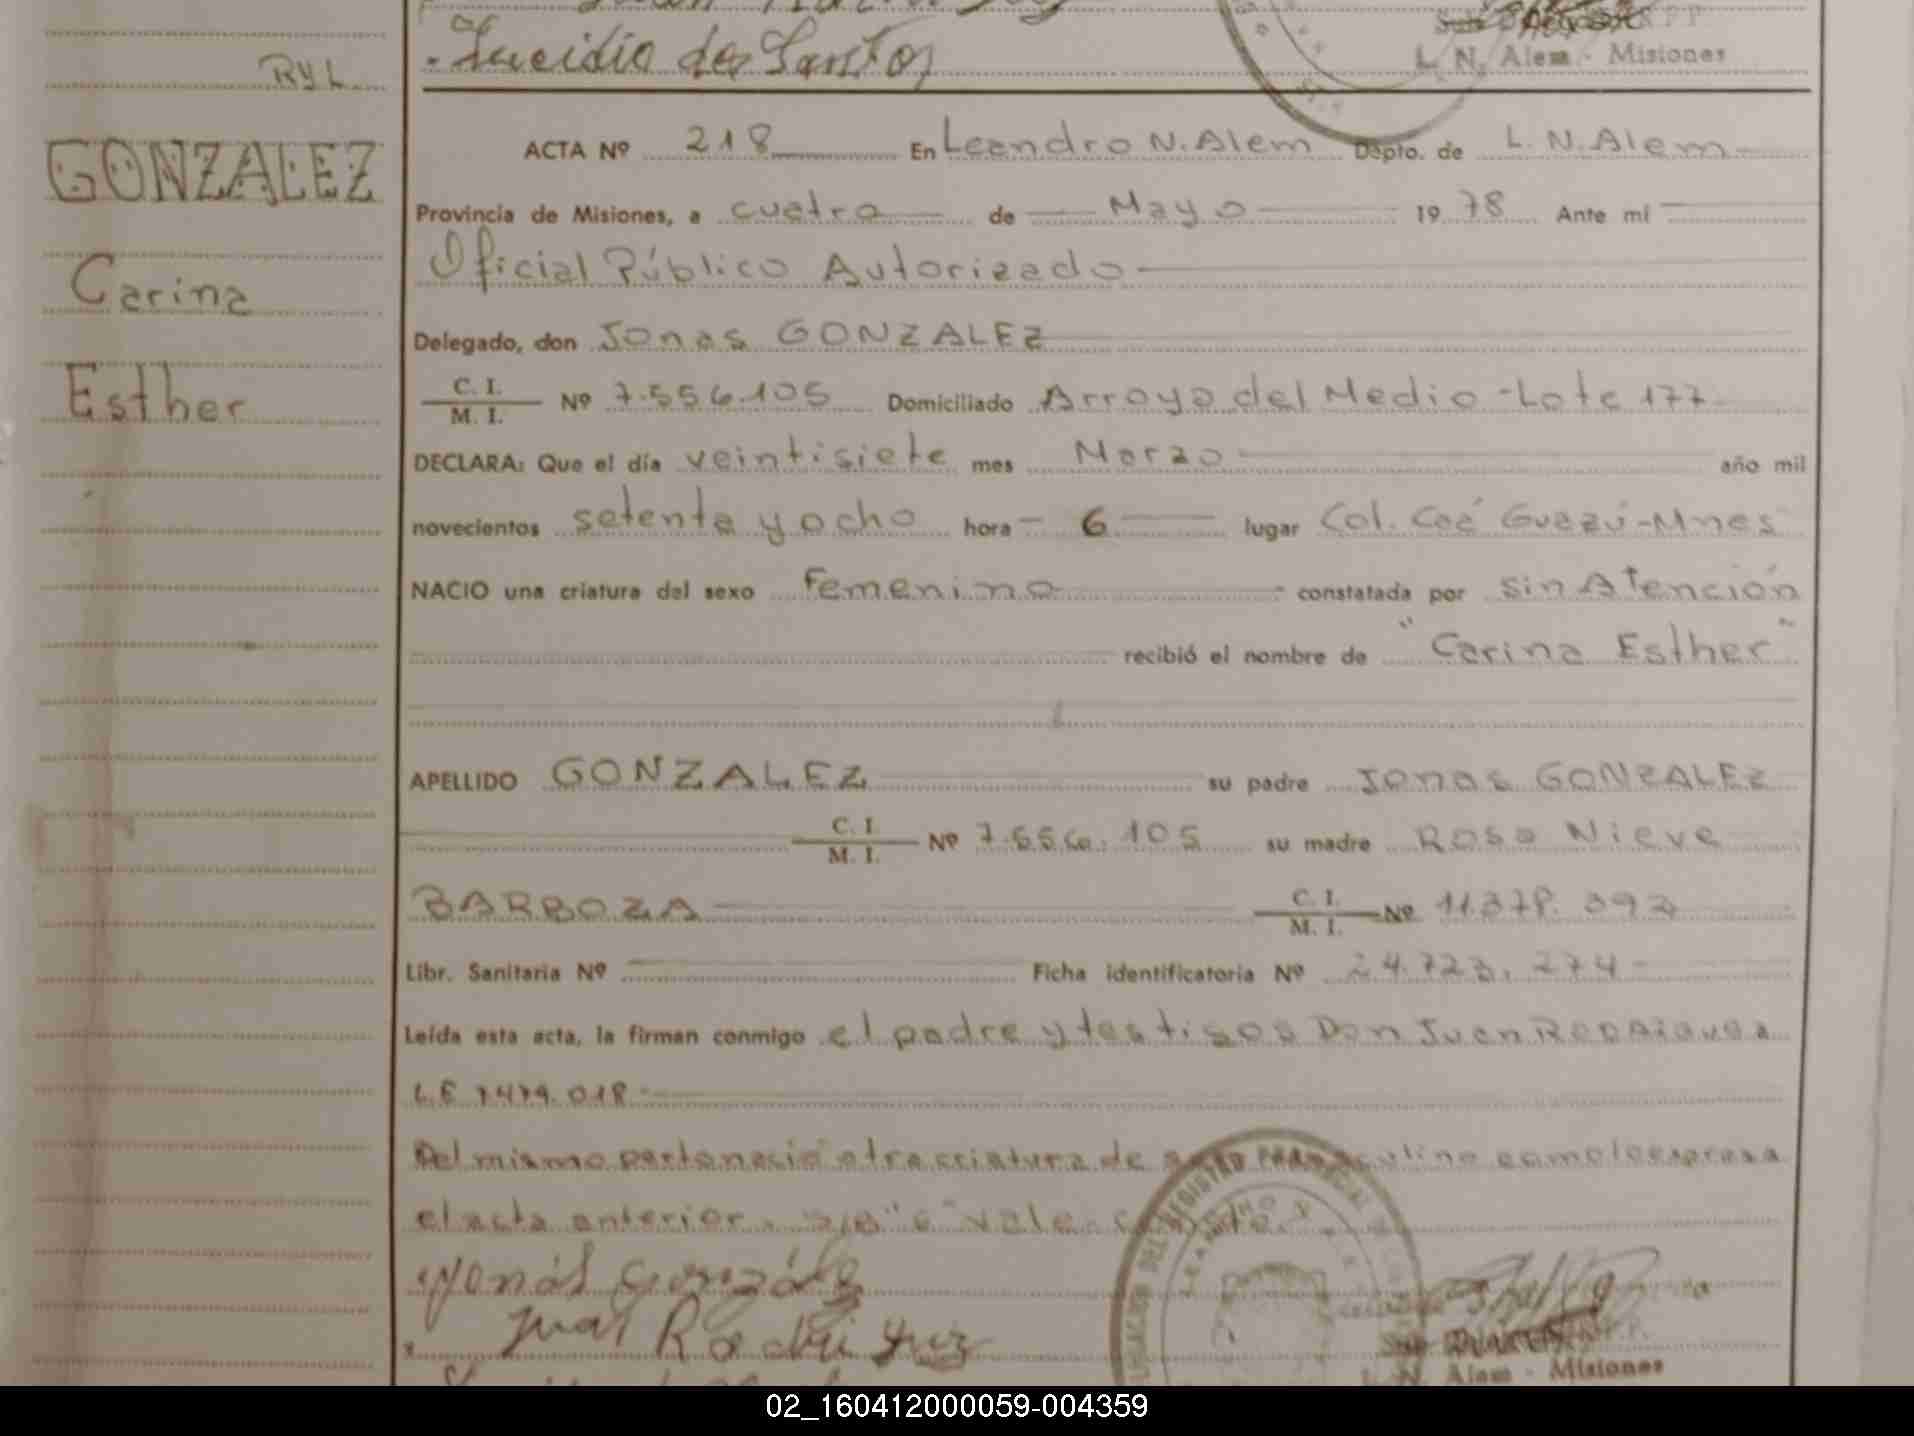 Lucidio dos Santos
L. N. Alem - Misiones
RyL
GONZALEZ
Carina
Esther
ACTA Nº 218 En Leandro N. Alem Dapto. de L. N. Alem
Provincia de Misiones, a cuatro de Mayo 19 78 Ante mi
Oficial Público Autorizado
Delegado, don Jonas GONZALEZ
C. I.
M. I. Nº 7.556.105 Domiciliado Arroyo del Medio - Lote 177
DECLARA: Que el día veintisiete mes Marzo año mil
novecientos setenta y ocho hora 6 lugar Col. Caá Guazú - Mnes
NACIO una criatura del sexo Femenino constatada por sin Atención
recibió el nombre de "Carina Esther"
APELLIDO GONZALEZ su padre Jonas GONZALEZ
C. I.
M. I. Nº 7.556.105 su madre Rosa Nieve
BARBOZA C. I.
M. I. Nº 11.378.392
Libr. Sanitaria Nº Ficha identificatoria Nº 24.723.274
Leída esta acta, la firman conmigo el padre y testigos Don Juan RODRIGUEZ
L.E 7.474.018
Del mismo parto nació otra criatura de masculino como lo expresa
el acta anterior. vale. Conste.
Jonás González
Juan Rodriguez
L. N. Alem - Misiones
02_160412000059-004359